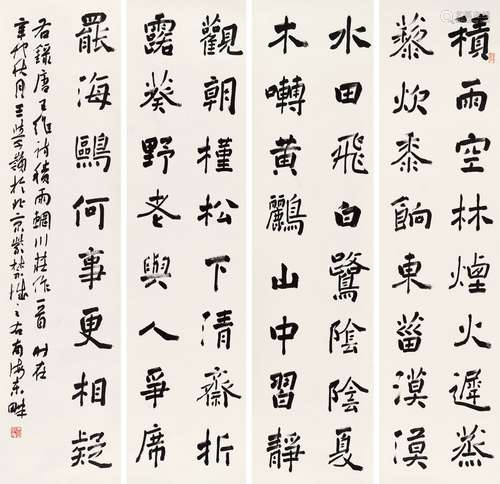 積雨空林煙火遲蒸
藜炊黍餉東菑漠漠
水田飛白鷺陰陰夏
木囀黃鸝山中習靜
觀朝槿松下清齋折
露葵野老與人爭席
罷海鷗何事更相疑
右錄唐王維诗積雨輞川莊作一首 时在
辛卯秋月王於北京紫禁城之右南海东畔